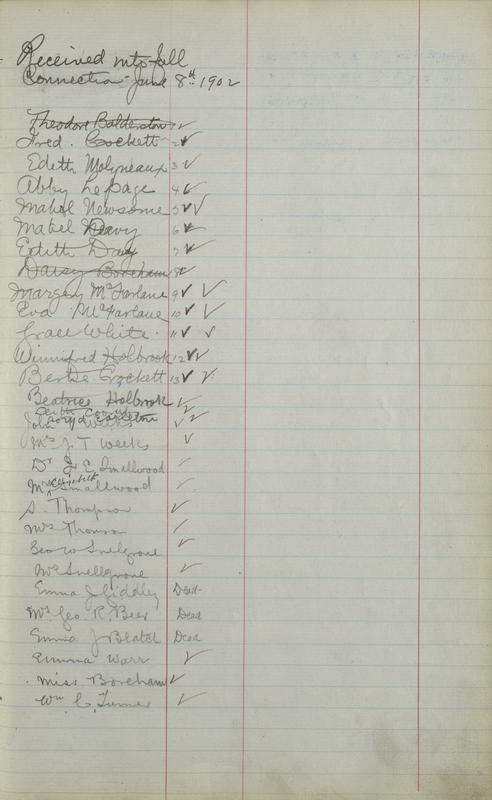 Received into full
Connection June 8th 1902
Theodore Balderston 1 ✓
Fred. Crockett 2 ✓
Edith Molyneaux 3 ✓
Abby LePage 4 ✓
Mabel Newsome 5 ✓✓
Mabel Davy 6 ✓
Edith Davy 7 ✓
Daisy Boreham 8 ✓
Margery McFarlane 9 ✓ ✓
Eva McFarlane 10 ✓ ✓
Grace White 11 ✓ ✓
Winnifred Holbrook 12 ✓✓
Bertie Crockett 13 ✓ ✓
Beatrice Holbrook ✓
John Weeks ✓ ✓
Mrs J. T Weeks ✓
Dr J. E. Smallwood ✓
Mrs Smallwood ✓
S. Thompson ✓
Mrs Thomson ✓
Geo W Snelgrove ✓
Mrs Snellgrove ✓
Emma J Giddley Dead
Mrs Geo. R. Beer Dead
Emma J Dead
Emma Warr ✓
Miss Boreham ✓
Wm C. Turner ✓